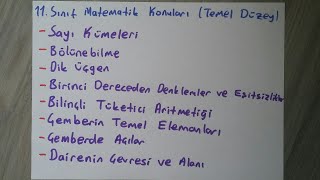 11. Sınıf Matematik Konuları (Temel Düzey)
- Sayı Kümeleri
- Bölünebilme
- Dik Üçgen
- Birinci Dereceden Denklemler ve Eşitsizlikler
- Bilinçli Tüketici Aritmetiği
- Çemberin Temel Elemanları
- Çemberde Açılar
- Dairenin Çevresi ve Alanı